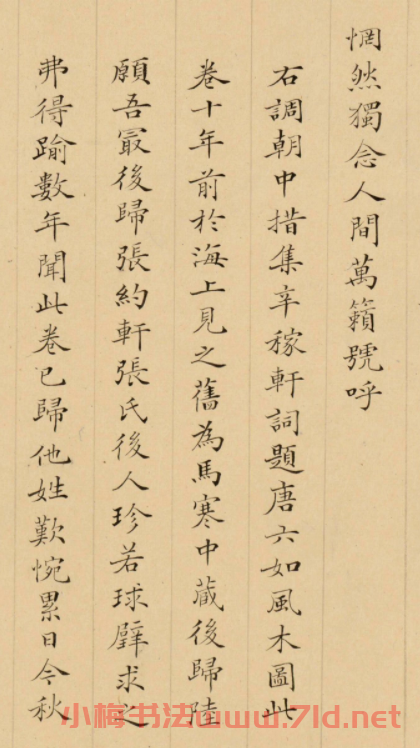 惘然獨念人間萬籟號呼
右調朝中措集辛稼軒詞題唐六如風木圖此
卷十年前於海上見之舊為馬寒中藏後歸陸
願吾最後歸張約軒張氏後人珍若球璧求之
弗得踰數年聞此卷已歸他姓歎惋累日今秋
小梅书法www.7ld.net